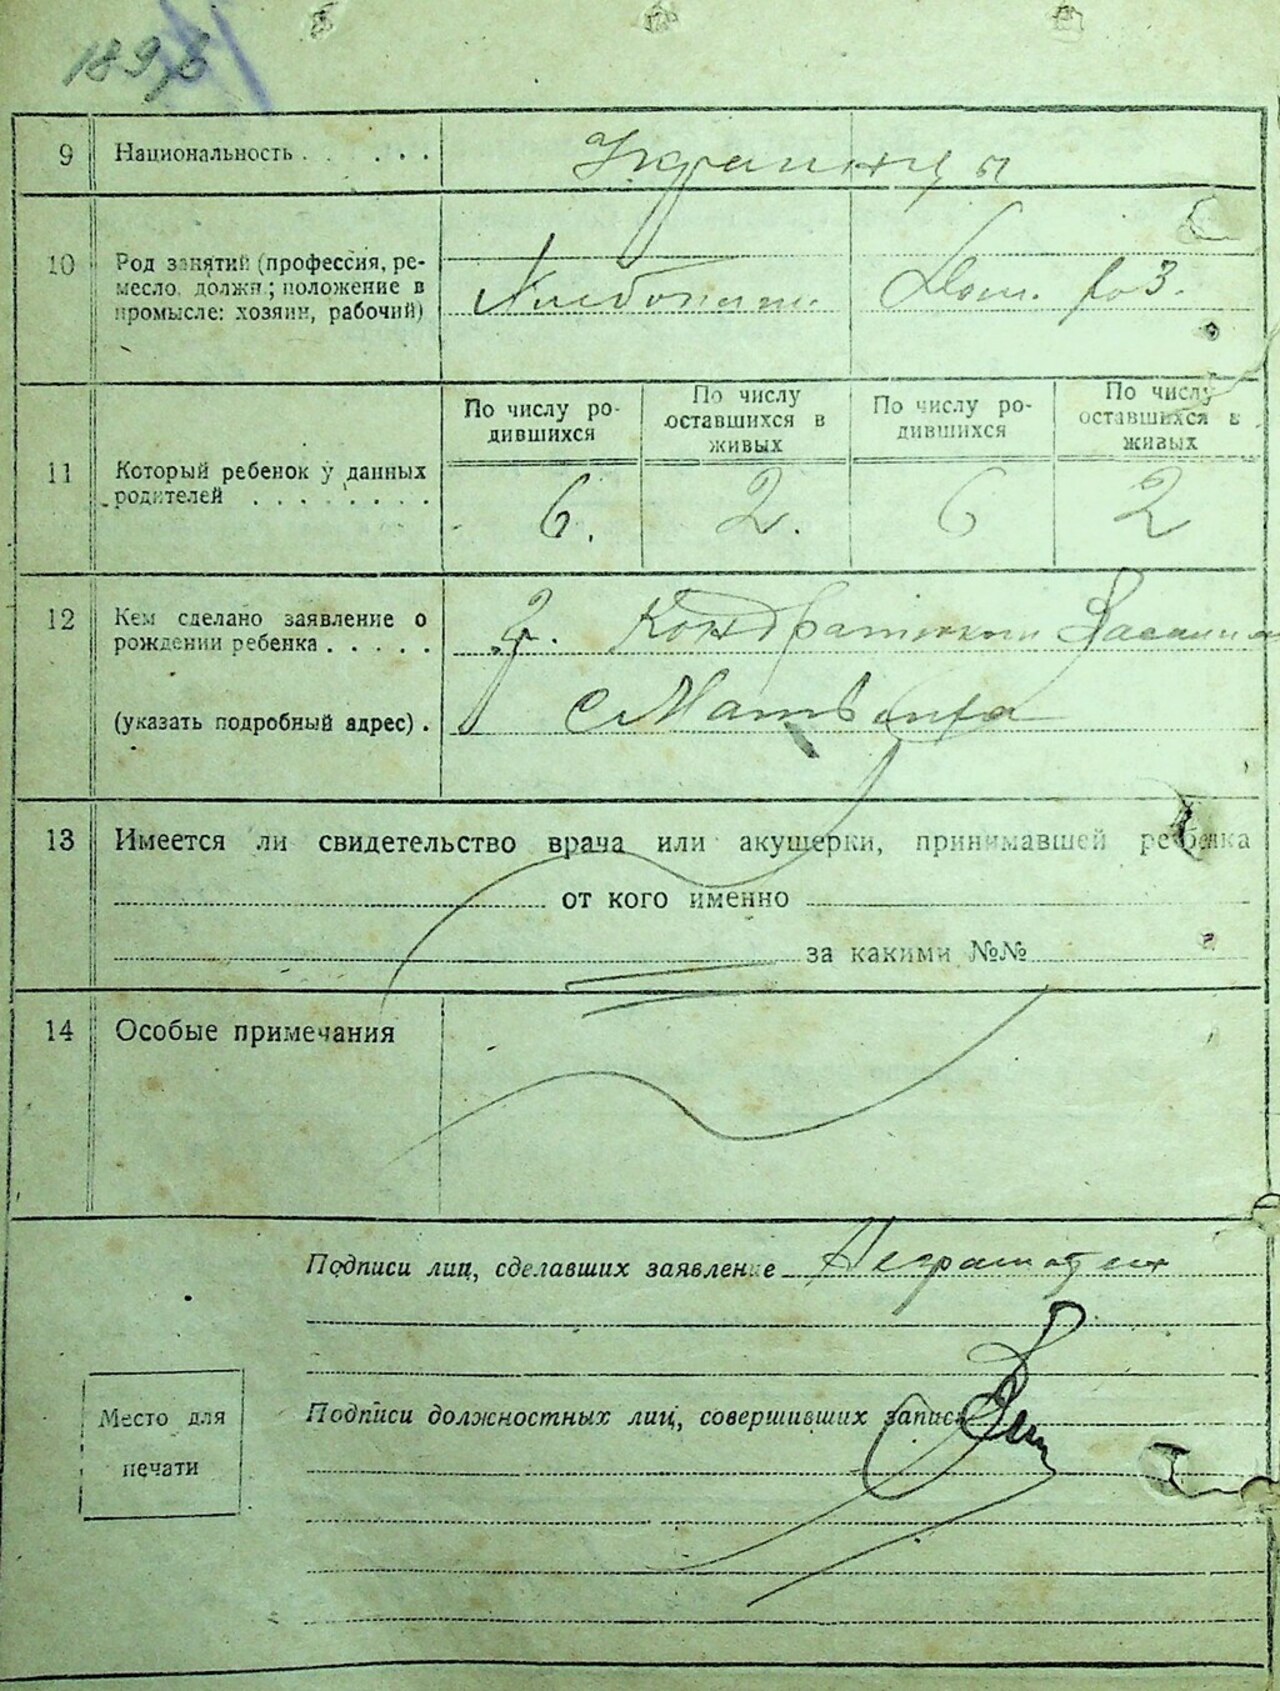 189
9 Национальность . . . . . . Украинцы
10 Род занятий (профессия, ре-
месло, должн.; положение в
промысле: хозяин, рабочий)
Хлебопаш. Дом. хоз.
11 Который ребенок у данных
родителей . . . . . . . .
По числу ро-
дившихся
По числу
оставшихся в
живых
По числу ро-
дившихся
По числу
оставшихся в
живых
6. 2. 6 2
12 Кем сделано заявление о
рождении ребенка . . . . .
(указать подробный адрес) .
гр.
с
13 Имеется ли свидетельство врача или акушерки, принимавшей ребенка
от кого именно
за какими №№
14 Особые примечания
Подписи лиц, сделавших заявление Неграмотен
Подписи должностных лиц, совершивших запись
Место для
печати